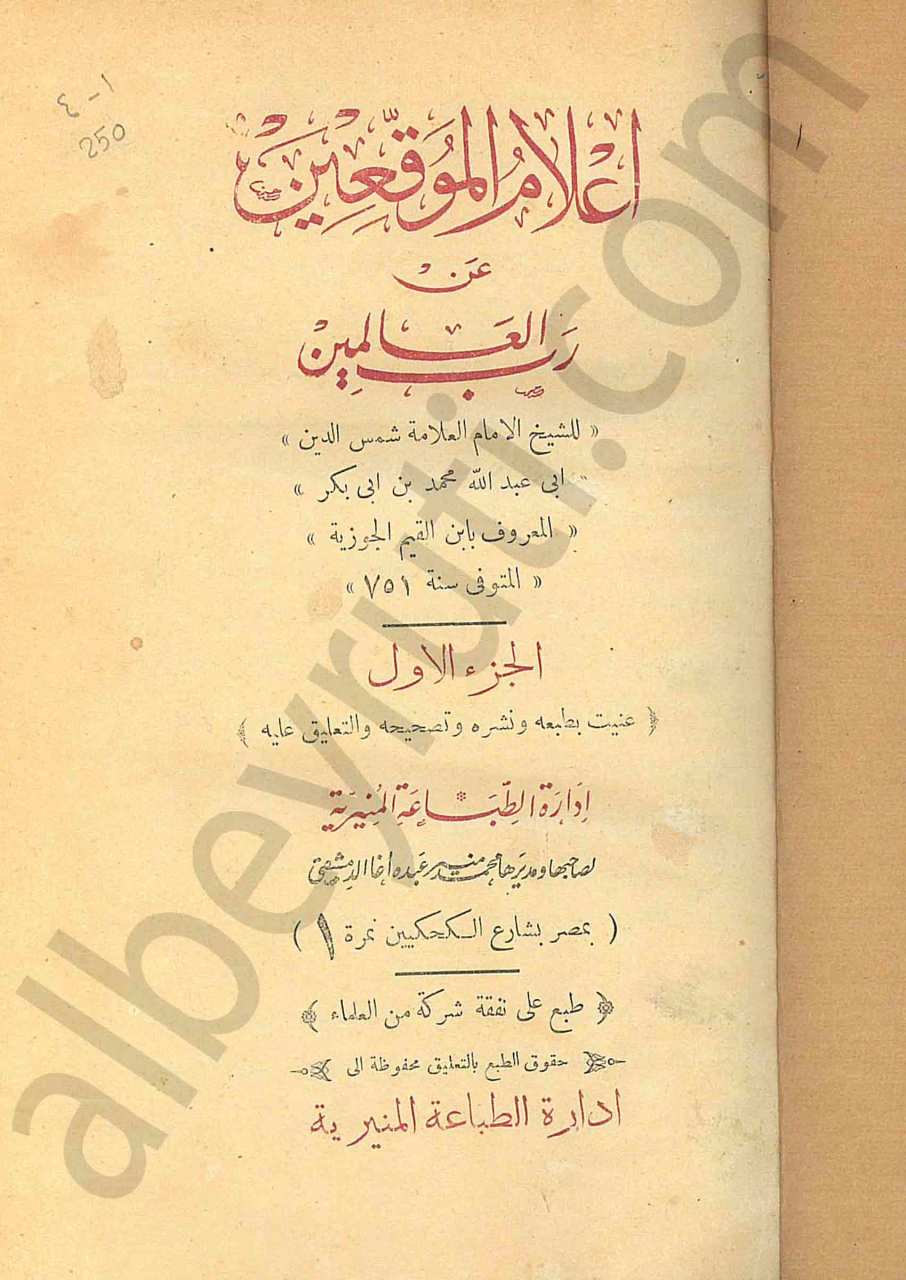 ١-٤
250
اعْلامُ المُوَقِّعِيْنَ
عَنْ
رَبِّ العَالَمِيْن
« للشيخ الامام العلامة شمس الدين »
« ابى عبد الله محمد بن ابى بكر »
« المعروف بابن القيم الجوزية »
« المتوفى سنة ٧٥١ »
الجزء الاول
﴿ عنيت بطبعه ونشره وتصحيحه والتعليق عليه ﴾
اِدَارَة الطِّبَاعَةِ المُنِيرَية
لصاحبها ومديرها محمد منير عبده اغا الدمشقى
( بمصر بشارع الكحكيين نمرة ١ )
﴿ طبع على نفقة شركة من العلماء ﴾
حقوق الطبع بالتعليق محفوظة الى
ادارة الطباعة المنيرية
albeyruti.com